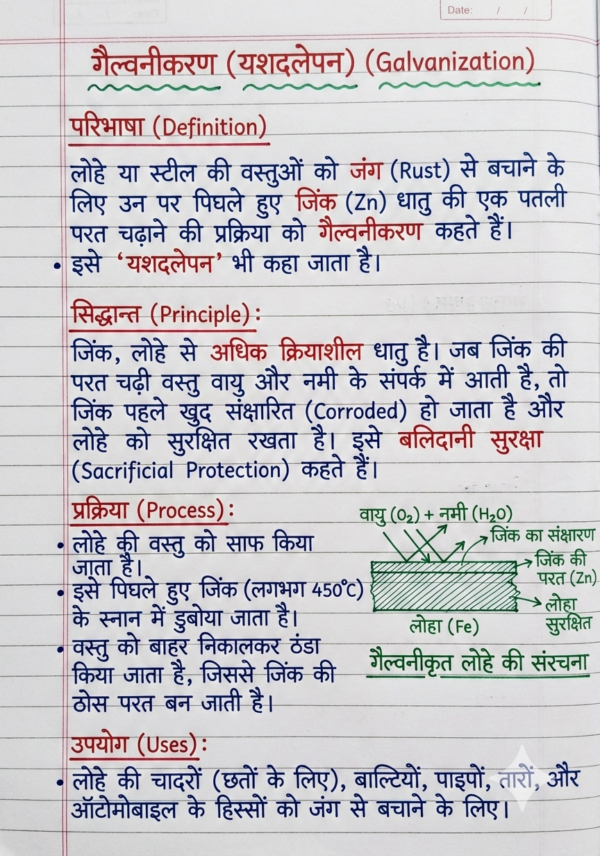 Date: / /
गैल्वनीकरण (यशदलेपन) (Galvanization)
परिभाषा (Definition)
लोहे या स्टील की वस्तुओं को जंग (Rust) से बचाने के
लिए उन पर पिघले हुए जिंक (Zn) धातु की एक पतली
परत चढ़ाने की प्रक्रिया को गैल्वनीकरण कहते हैं।
• इसे ‘यशदलेपन’ भी कहा जाता है।
सिद्धान्त (Principle):
जिंक, लोहे से अधिक क्रियाशील धातु है। जब जिंक की
परत चढ़ी वस्तु वायु और नमी के संपर्क में आती है, तो
जिंक पहले खुद संक्षारित (Corroded) हो जाता है और
लोहे को सुरक्षित रखता है। इसे बलिदानी सुरक्षा
(Sacrificial Protection) कहते हैं।
प्रक्रिया (Process):
• लोहे की वस्तु को साफ किया
जाता है।
• इसे पिघले हुए जिंक (लगभग 450°C)
के स्नान में डुबोया जाता है।
• वस्तु को बाहर निकालकर ठंडा
किया जाता है, जिससे जिंक की
ठोस परत बन जाती है।
वायु (O₂) + नमी (H₂O)
जिंक का संक्षारण
जिंक की
परत (Zn)
लोहा
सुरक्षित
लोहा (Fe)
गैल्वनीकृत लोहे की संरचना
उपयोग (Uses):
• लोहे की चादरों (छतों के लिए), बाल्टियों, पाइपों, तारों, और
ऑटोमोबाइल के हिस्सों को जंग से बचाने के लिए।